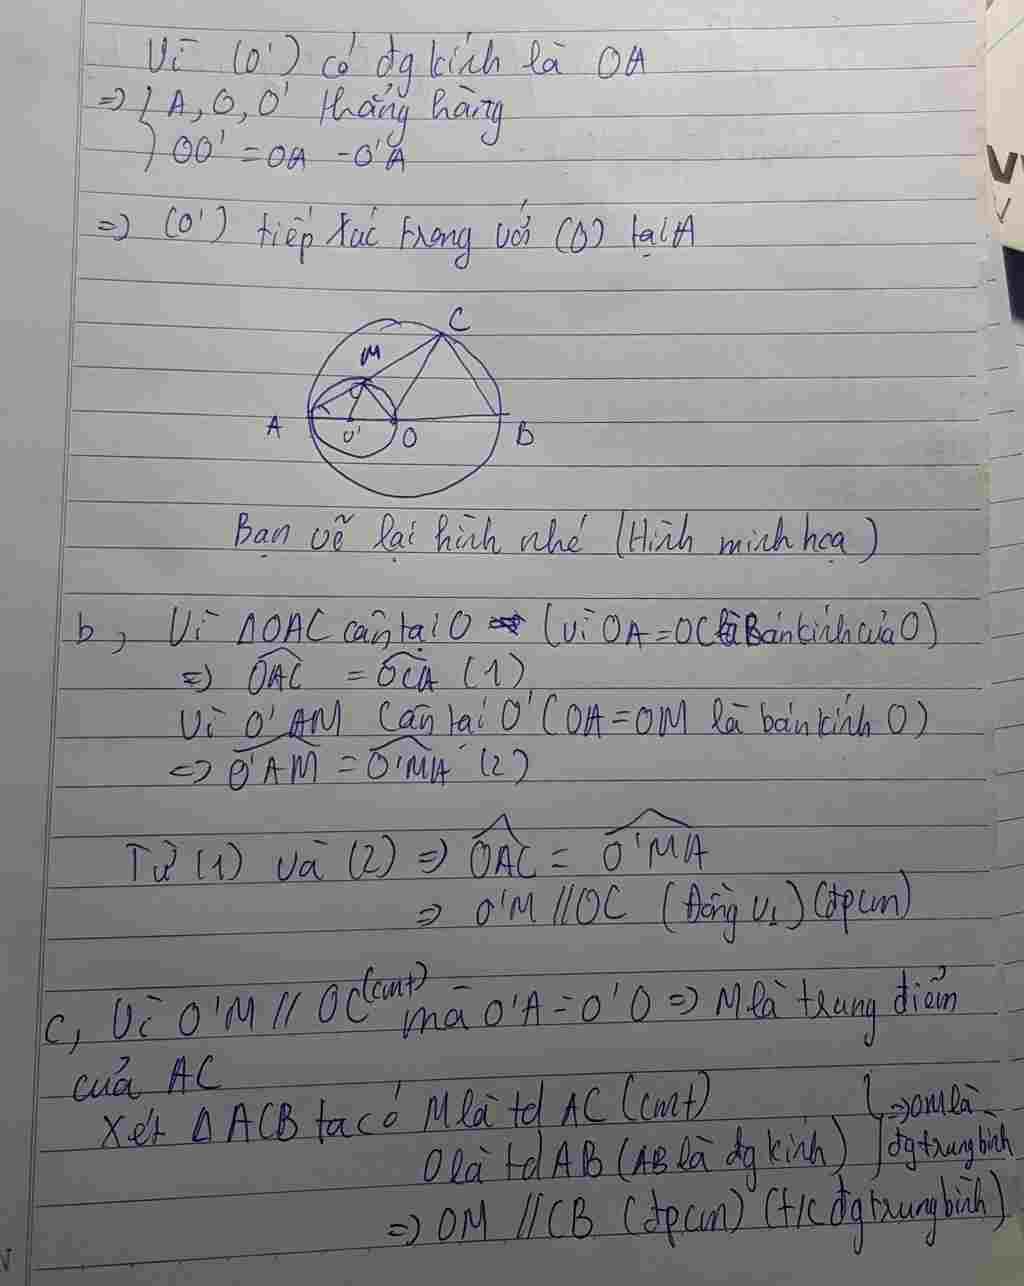 Vì (O') có đg kính là OA
=> { A, O, O' thẳng hàng
OO' = OA - O'A
=> (O') tiếp xúc trong với (O) tại A
C
M
A O' O B
Bạn vẽ lại hình nhé (Hình minh họa)
b, Vì ΔOAC cân tại O (vì OA = OC là Bán kính của O)
=> OAC = OCA (1)
Vì O'AM Cân tại O' (OA = OM là bán kính O)
=> O'AM = O'MA (2)
Từ (1) và (2) => OAC = O'MA
=> O'M // OC (Đồng vị) (đpcm)
c, Vì O'M // OC (cmt) mà O'A = O'O => M là trung điểm
của AC
Xét Δ ACB ta có M là td AC (cmt)
O là td AB (AB là đg kính) } => OM là đg trung bình
=> OM // CB (đpcm) (t/c đg trung bình)